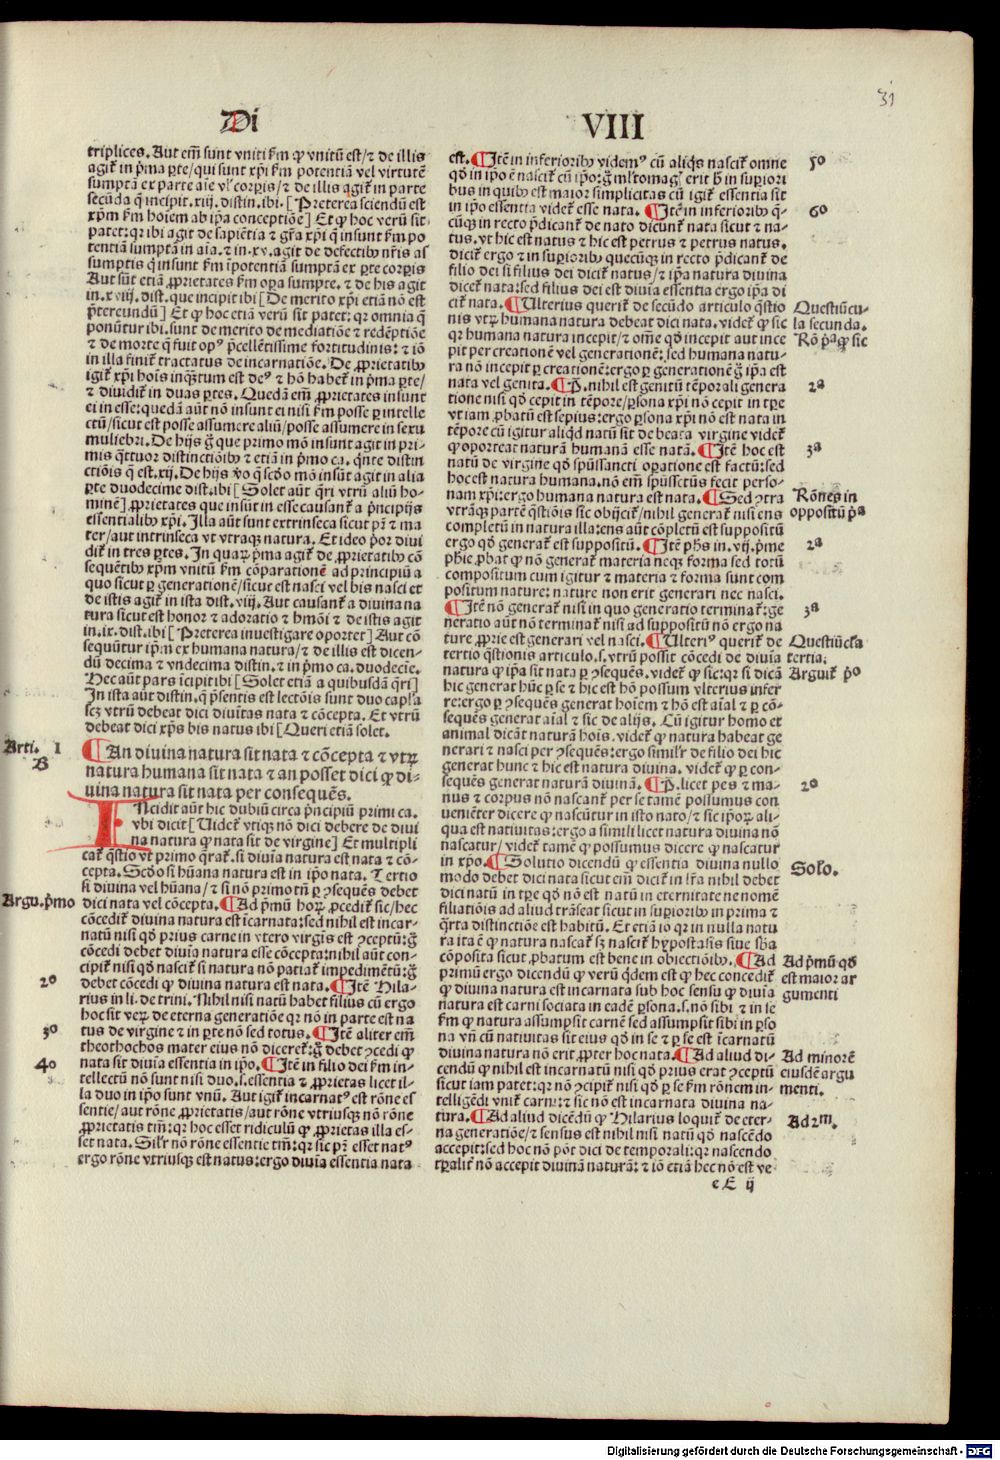 31
Di VIII
triplices. Aut em̄ sunt vniti s̄m ꝙ vnitū est/ ⁊ de illis
agit᷑ in p̄ma ꝑte/ qui sunt xp̄i s̄m potentiā vel virtutē
sumptā ex parte aīe vl̓ corꝑis/ ⁊ de illis agit᷑ in parte
secūda q̄ incipit. xiij. distin. ibi. [Preterea sciendū est
xp̄m s̄m hoīem ab ip̄a conceptiōe] Et ꝙ hoc verū sit
patet: qr ibi agit de sapiētia ⁊ gr̄a xp̄i q̄ insunt s̄m po
tentiā sumptā in aīa. ⁊ in. xv. agit de defectibꝰ nr̄is as
sumptis q̄ insunt s̄m īpotentiā sumptā ex ꝑte corꝑis
Aut sūt etiā ꝓprietates s̄m oꝑa sumpte. ⁊ de his agit
in. xviij. dist. que incipit ibi [De merito xp̄i etiā nō est
p̄tereundū] Et ꝙ hoc etiā verū sit patet: qr omnia q̄
ponūtur ibi. sunt de merito de mediatiōe ⁊ redēptiōe
⁊ de morte q̄ fuit opꝰ p̄cellētissime fortitudinis: ⁊ iō
in illa finit᷑ tractatus de incarnatiōe. De ꝓprietatibꝰ
igit᷑ xp̄i hoīs inqꝫtum est deꝰ ⁊ hō habet᷑ in p̄ma ꝑte/
⁊ diuidit᷑ in duas ꝑtes. Quedā em̄ ꝓprietates insunt
ei in esse: quedā aūt nō insunt ei nisi s̄m posse ꝑ intelle
ctū/ sicut est posse assumere aliū/ posse assumere in sexu
muliebri. De hijs g̊ que primo mō insunt agit in pri-
mis q̄ttuor distinctiōibꝰ ⁊ etiā in p̄mo ca. q̄nte distin
ctiōis q̄ est. xij. De hijs v̊o q̄ scd̊o mō insūt agit in alia
ꝑte duodecime dist. ibi [Solet aūt q̄ri vtrū aliū ho-
minē] ꝓprietates que insūt in esse causant᷑ a p̄ncipijs
essentialibꝰ xp̄i. Illa aūt sunt extrinseca sicut pr̄ ⁊ ma
ter/ aut intrinseca vt vtraqꝫ natura. Et ideo p̊or diui
dit᷑ in tres ꝑtes. In quaꝝ p̄ma agit᷑ de ꝓprietatibꝰ cō
sequētibꝰ xp̄m vnitū s̄m cōparationē ad principiū a
quo sicut ꝑ generationē/ sicut est nasci vel bis nasci et
de istis agit᷑ in ista dist. viij. Aut causant᷑ a diuina na
tura sicut est honor ⁊ adoratio ⁊ hmōi ⁊ de istis agit
in. ix. dist. ibi [Preterea inuestigare oportet] Aut cō
sequūtur ip̄m ex humana natura/ ⁊ de illis est dicen-
dū decima ⁊ vndecima distin. ⁊ in p̄mo ca. duodecīe.
Hec aūt pars īcipit ibi [Solet etiā a quibusdā q̄ri]
In ista aūt distin. q̄ p̄sentis est lectōis sunt duo capl̓a
scꝫ vtrū debeat dici diuītas nata ⁊ cōcepta. Et vtrū
debeat dici xp̄s bis natus ibi [Queri etiā solet.
Arti. I
B
¶An diuina natura sit nata ⁊ cōcepta ⁊ vtꝝ
natura humana sit nata ⁊ an posset dici ꝙ di-
uina natura sit nata per consequēs.
INcidit aūt hic dubiū circa p̄ncipiū primi ca.
vbi dicit [Uidet᷑ vtiqꝫ nō dici debere de diui
na natura ꝙ nata sit de virgine] Et multipli
cat᷑ q̄stio vt primo q̄rat᷑. si diuīa natura est nata ⁊ cō-
cepta. Scd̊o si hūana natura est in ip̄o nata. Tertio
si diuina vel hūana/ ⁊ si nō primo tn̄ ꝑ ꝯsequēs debet
Argu. p̄mo
dici nata vel cōcepta. ¶Ad p̄mū hoꝝ ꝓcedit᷑ sic/ hec
cōcedit᷑ diuina natura est īcarnata: sed nihil est incar-
natū nisi qd̓ prius carne in vtero virgīs est ꝯceptū: g̊
cōcedi debet diuīa natura esse cōcepta: nihil aūt con-
cipit᷑ nisi qd̓ nascit᷑ si natura nō patiat᷑ impedimētū: g̊
2º
debet cōcedi ꝙ diuina natura est nata. ¶Itē Hila-
rius in li. de trini. Nihil nisi natū habet filius cū ergo
hoc sit veꝝ de eterna generatiōe qr nō in parte est na
3º
tus de virgine ⁊ in ꝑte nō sed totus. ¶Itē aliter em̄
theothochos mater eius nō diceret᷑: g̊ debet ꝯcedi ꝙ
4º
nata sit diuīa essentia in ip̄o. ¶Itē in filio dei s̄m in-
tellectū nō sunt nisi duo. s. essentia ⁊ ꝓprietas licet il-
la duo in ip̄o sunt vnū. Aut igit᷑ incarnatꝰ est rōne es
sentie/ aut rōne ꝓprietatis/ aut rōne vtriusqꝫ nō rōne
ꝓprietatis tm̄: qr hoc esset ridiculū ꝙ ꝓprietas illa es-
set nata. Silr̓ nō rōne essentie tm̄: qr sic pr̄ esset natꝰ
ergo rōne vtriusqꝫ est natus: ergo diuīa essentia nata
5º
est. ¶Itē in inferioribꝰ videmꝰ cū aliqd̓ nascit᷑ omne
qd̓ in ip̄o ē nascit᷑ cū ip̄o: g̊ ml̓tomagꝭ erit h̄ in suꝑiori
bus in quibꝰ est maior simplicitas cū igit᷑ essentia sit
6º
in ip̄o essentia videt᷑ esse nata. ¶Itē in inferioribꝰ q̄-
cūqꝫ in recto p̄dicant᷑ de nato dicunt᷑ nata sicut ⁊ na-
tus. vt hic est natus ⁊ hic est petrus ⁊ petrus natus.
dicit᷑ ergo ⁊ in suꝑioribꝰ quecūqꝫ in recto p̄dicant᷑ de
filio dei si filius dei dicit᷑ natus/ ⁊ ip̄a natura diuina
dicet᷑ nata: sed filius dei est diuīa essentia ergo ip̄a di
Questiūcu-
la secunda.
cit᷑ nata. ¶Ulterius querit᷑ de secūdo articulo q̄stio
nis vtꝝ humana natura debeat dici nata. videt᷑ ꝙ sic
Rō p̄ª ꝙ sic
qr humana natura incepit/ ⁊ om̄e qd̓ incepit aut ince
pit per creationē vel generationē: sed humana natu-
ra nō incepit ꝑ creationē: ergo ꝑ generationē g̊ ip̄a est
2ª
nata vel genita. ¶P̄. nihil est genitū tēporali genera
tione nisi qd̓ cepit in tēpore/ ꝑsona xp̄i nō cepit in tꝑe
vt iam ꝓbatū est sepius: ergo ꝑsona xp̄i nō est nata in
tēpore cū igitur aliqd̓ natū sit de beata virgine videt᷑
3ª
ꝙ oporteat naturā humanā esse natā. ¶Itē hoc est
natū de virgine qd̓ spūssancti oꝑatione est factū: sed
hoc est natura humana. nō em̄ spūssctūs fecit perso-
Rōnes in
oppositū p̄ª
nam xp̄i: ergo humana natura est nata. ¶Sed ꝯtra
vtrāqꝫ partē q̄stiōis sic obijcit᷑/ nihil generat᷑ nisi ens
completū in natura illa: ens aūt cōpletū est suppositū
2ª
ergo qd̓ generat᷑ est suppositū. ¶Itē ph̄s in. vij. p̄me
ph̄ie ꝓbat ꝙ nō generat᷑ materia neqꝫ forma sed totū
compositum cum igitur ⁊ materia ⁊ forma sunt com
positum nature: nature non erit generari nec nasci.
3ª
¶Itē nō generat᷑ nisi in quo generatio terminat᷑: ge
neratio aūt nō terminat᷑ nisi ad suppositū nō ergo na
Questiūcl̓a
tertia:
ture ꝓprie est generari vel nasci. ¶Ulteriꝰ querit᷑ de
tertio q̄stionis articulo. s. vtrū possit cōcedi de diuīa
Arguit᷑ p̄º
natura ꝙ ip̄a sit nata ꝑ ꝯsequēs. videt᷑ ꝙ sic: qr si dicā
hic generat hūc ꝑ se ⁊ hic est hō possum vlterius infer
re: ergo ꝑ ꝯsequēs generat hoīem ⁊ hō est aīal ⁊ ꝑ cō-
sequēs generat aīal ⁊ sic de alijs. Cū igitur homo et
animal dicāt naturā hoīs. videt᷑ ꝙ natura habeat ge
nerari ⁊ nasci per ꝯsequēs: ergo similr̓ de filio dei hic
generat hunc ⁊ hic est natura diuina. videt᷑ ꝙ ꝑ con-
2º
sequēs generat naturā diuinā. ¶P̄. licet pes ⁊ ma-
nus ⁊ corpus nō nascant᷑ per se tamē possumus con
uenienter dicere ꝙ nascūtur in isto nato/ ⁊ sic ip̄oꝝ ali-
qua est natiuitas: ergo a simili licet natura diuina nō
nascatur/ videt᷑ tamē ꝙ possumus dicere ꝙ nascatur
Solo.
in xp̄o. ¶Solutio dicendū ꝙ essentia diuina nullo
modo debet dici nata sicut em̄ dicit᷑ in lr̄a nihil debet
dici natū in tꝑe qd̓ nō est natū in eternitate ne nomē
filiatiōis ad aliud trāseat sicut in suꝑioribꝰ in prima ⁊
q̄rta distinctiōe est habitū. Et etiā io qr in nulla natu
ra ita ē ꝙ natura nascat᷑ sꝫ nascit᷑ hypostasis siue sb̄a
Ad p̄mū qd̓
est maior ar
gumenti
cōposita sicut ꝓbatum est bene in obiectiōibꝰ. ¶Ad
primū ergo dicendū ꝙ verū q̄dem est ꝙ hec concedit᷑
ꝙ diuina natura est incarnata sub hoc sensu ꝙ diuīa
natura est carni sociata in eadē ꝑsona. s. nō sibi ⁊ in se
s̄m ꝙ natura assumpsit carnē sed assumpsit sibi in ꝑso
na vn̄ cū natiuitas sit eius qd̓ in se ⁊ ꝑ se est īcarnatū
Ad minorē
eiusdē argu
menti.
diuina natura nō erit ꝓpter hoc nata. ¶Ad aliud di-
cendū ꝙ nihil est incarnatū nisi qd̓ prius erat ꝯceptū
sicut iam patet: qr nō ꝯcipit᷑ nisi qd̓ ꝑ se s̄m rōnem in-
telligēdi vnit᷑ carni: ⁊ sic nō est incarnata diuina na-
Ad 2m̄.
tura. ¶Ad aliud dicēdū ꝙ Hilarius loquit᷑ de eter-
na generatiōe/ ⁊ sensus est nihil nisi natū qd̓ nascēdo
accepit: sed hoc nō pōt dici de temporali: qr nascendo
tꝑalit᷑ nō accepit diuinā naturā: ⁊ iō etiā hec nō est ve
eE ij
Digitalisierung gefördert durch die Deutsche Forschungsgemeinschaft - DFG